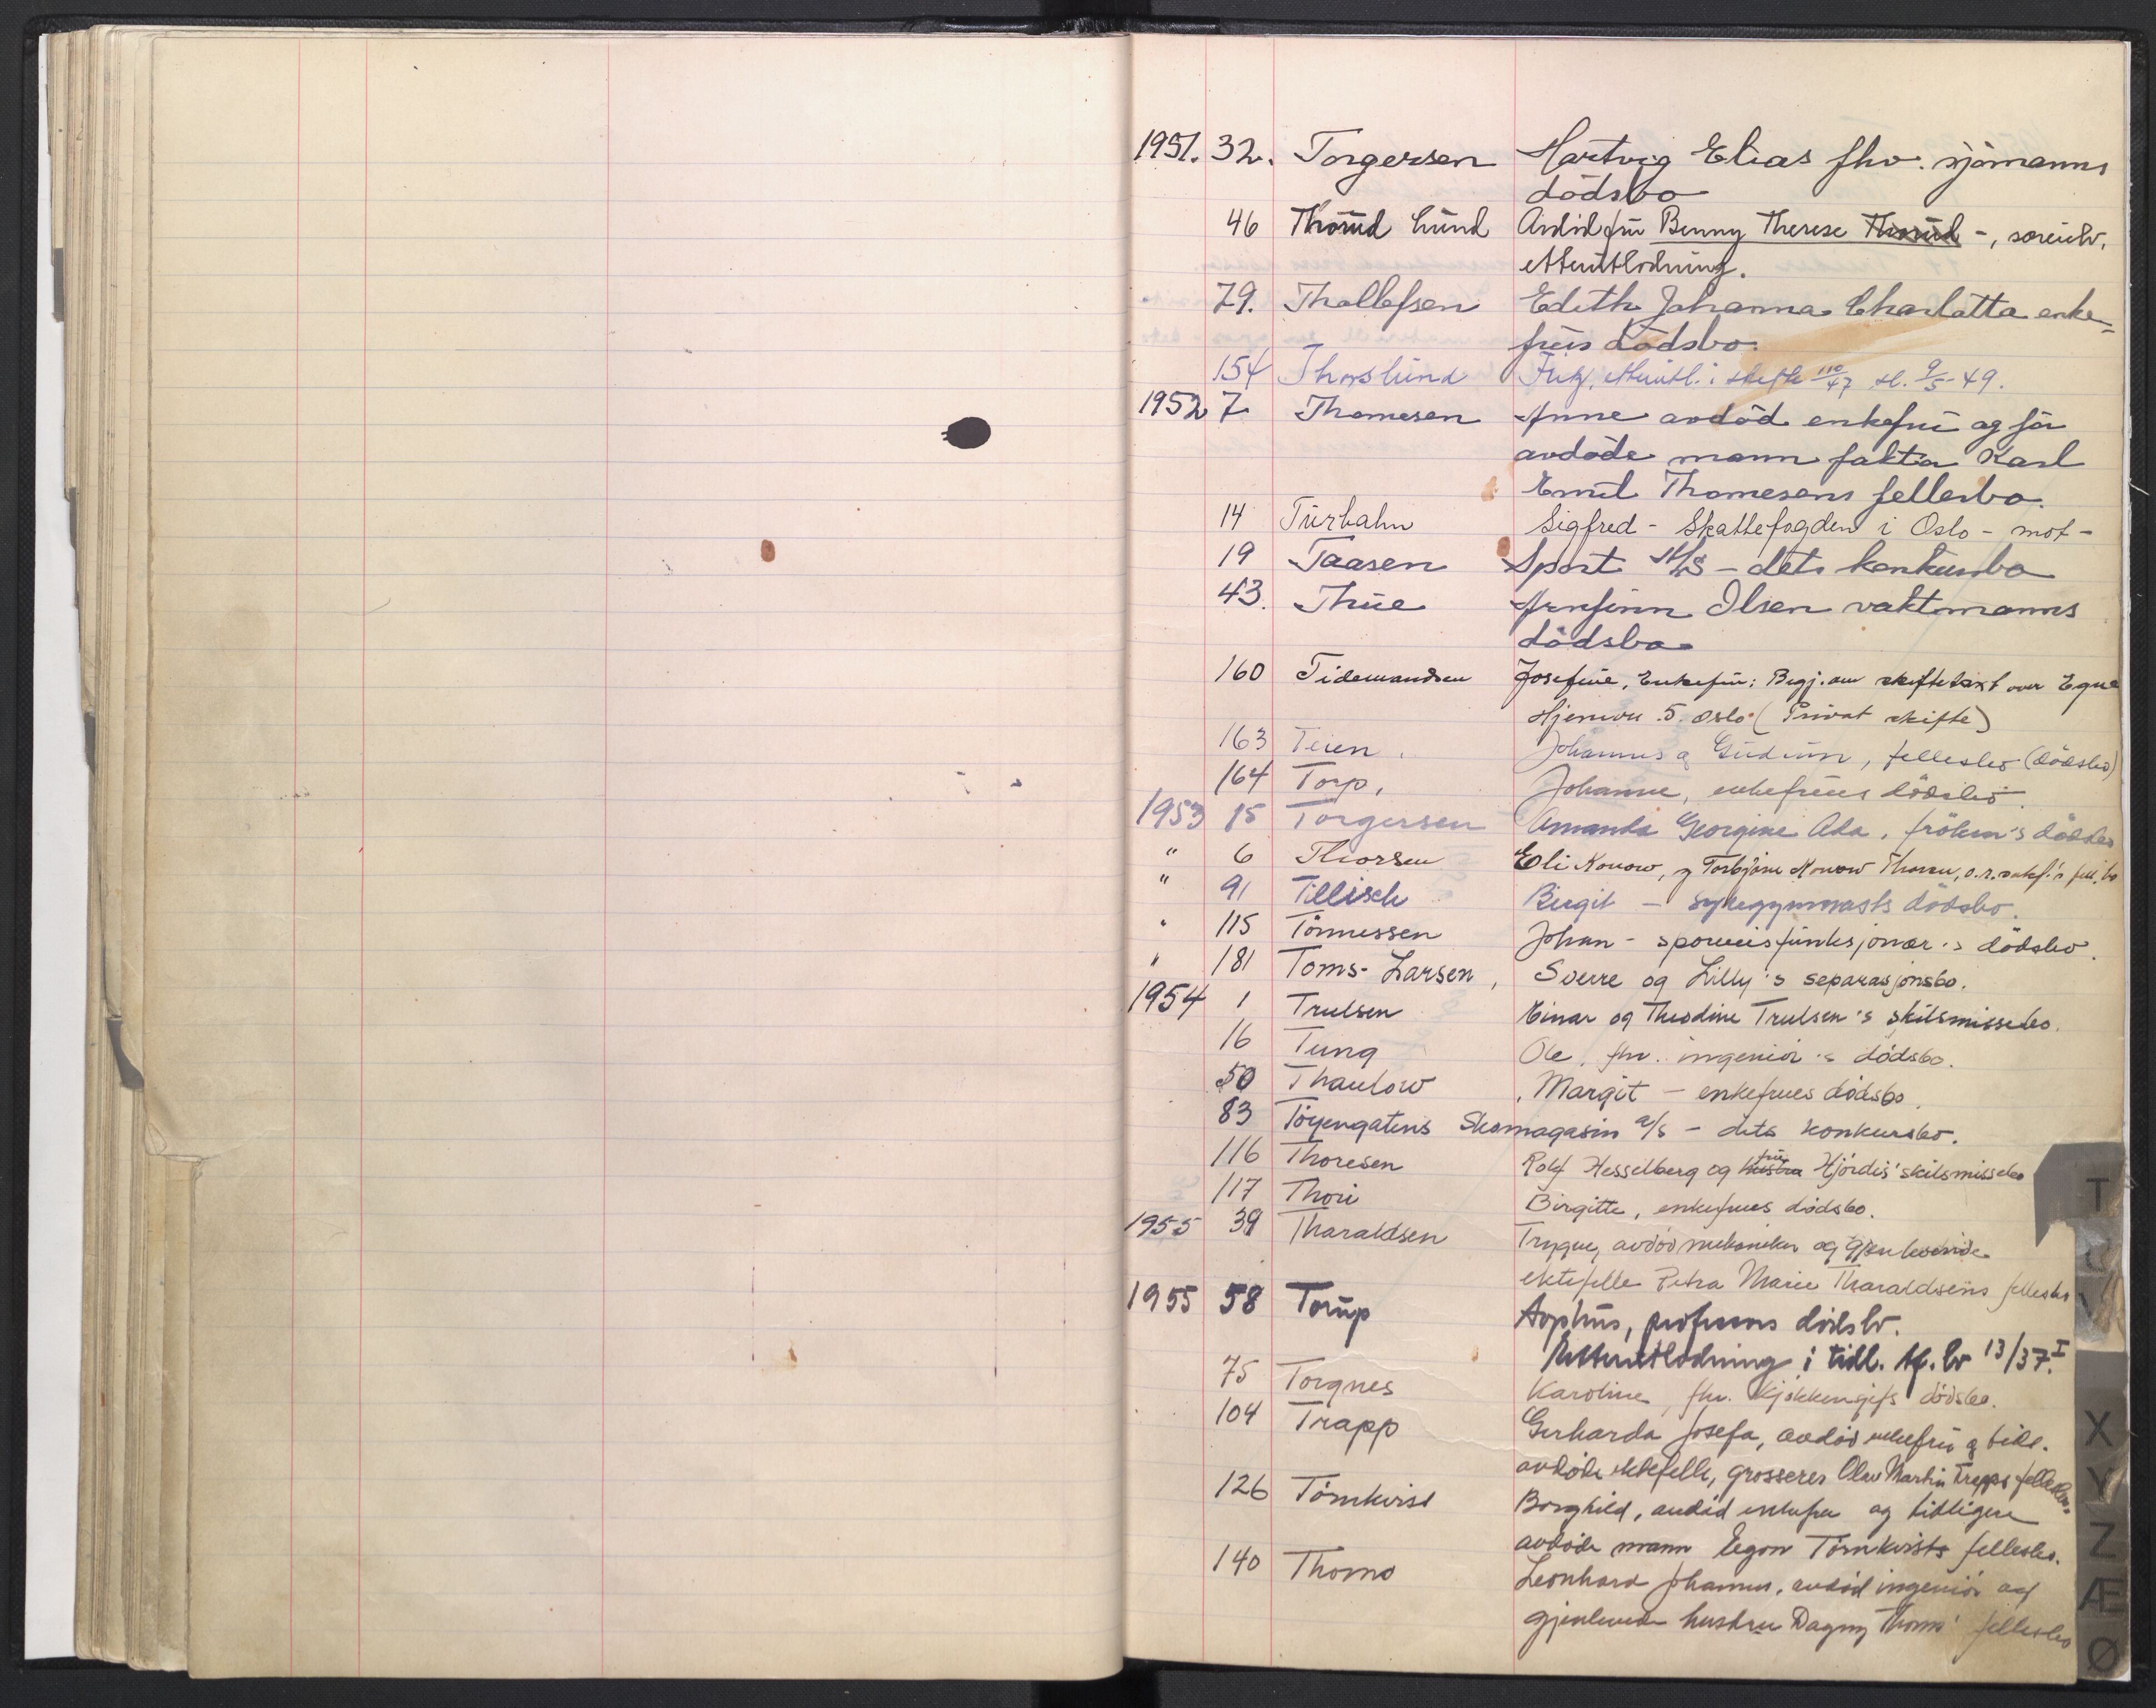 1951. 32. Torgersen Hartvig Elias fhv. sjømanns
dødsbo
46 Thorud Lund Avdød fru Benny Therese Thorud -,
etterutlodning.
79. Thollefsen Edith Johanna Charlotta enke-
frus dødsbo.
154 Thorslund Fritz, etterutl. i skifte 110/47 sl. 9/5-49.
1952 7 Thomesen Anne avdød enkefru og før
avdøde mann faktor Karl
Emil Thomesens fellesbo.
14 Turbahn Sigfred - Skattefogden i Oslo - mot -
19 Taasen Sport A/S - dets konkursbo
43. Thue Arnfinn Olsen vaktmanns
dødsbo
160 Tidemandsen Josefine, Enkefru: Begj. om skiftetakst over Egne
Hjemvei 5. Oslo. (Privat skifte)
163 Teien Johannes og Gudrun, fellesbo (dødsbo)
164 Torp, Johanne, enkefrues dødsbo.
1953 15 Torgersen Amanda Georgine Ada, frøken's dødsbo
" 6 Thorsen Eli Konow, og Torbjørn Konow Thorsen, o.r.sakf.'s fell.bo
" 91 Tillisch Birgit - sykegymnasts dødsbo.
" 115 Tønnessen Johan - sporveisfunksjonær's dødsbo.
" 181 Toms-Larsen, Sverre og Lilly's separasjonsbo.
1954 1 Trulsen Einar og Theodine Trulsen's skilsmissebo.
16 Tung Ole, fhv. ingeniør's dødsbo.
50 Thaulow, Margit - enkefrues dødsbo.
83 Tøyengatens Skomagasin a/s - dets konkursbo.
116 Thoresen Rolf Hesselberg og hustru fru Hjørdis' skilsmissebo
117 Thori Birgitte, enkefrues dødsbo.
1955 39 Tharaldsen Trygve, avdød mekaniker og gjenlevende
ektefelle Petra Marie Tharaldsens fellesbo
1955 58 Torup Sophus, professors dødsbo.
Etterutlodning i tidl. bo 13/37.I
75 Torgnes Karoline, fhv. kjøkkensjefs dødsbo.
104 Trapp Gerharda Josefa, avdød enkefru og tidl.
avdøde ektefelle, grosserer Olav Martin Trapps fellesbo.
126 Törnkvist Borghild, avdød enkefru og tidligere
avdøde mann Egon Törnkvists fellesbo.
140 Thomo Leonhard Johannes, avdød ingeniør og
gjenlevende hustru Dagny Thomo' fellesbo
T
U
V
X
Y
Z
Æ
Ø